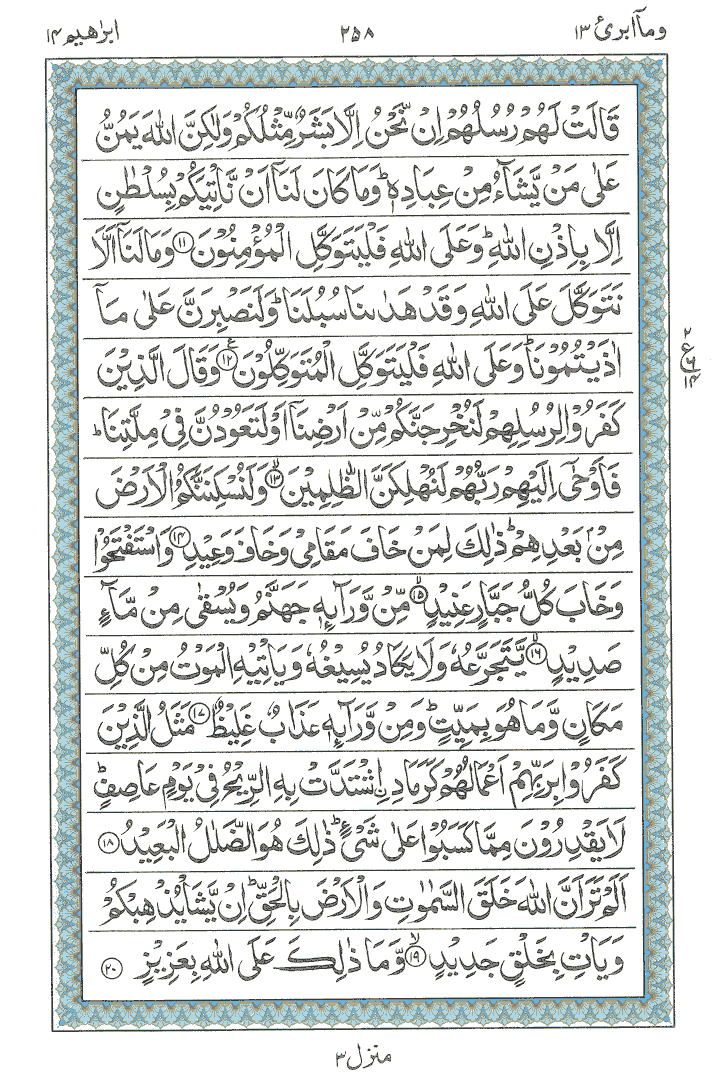 وما ابرئ ١٣ ٢٥٨ ابرٰهيم ١٤
قَالَتْ لَهُمْ رُسُلُهُمْ اِنْ نَّحْنُ اِلَّا بَشَرٌ مِّثْلُكُمْ وَلٰكِنَّ اللّٰهَ يَمُنُّ
عَلٰى مَنْ يَّشَآءُ مِنْ عِبَادِهٖ ؕ وَمَا كَانَ لَنَاۤ اَنْ نَّاْتِيَكُمْ بِسُلْطٰنٍ
اِلَّا بِاِذْنِ اللّٰهِ ؕ وَعَلَى اللّٰهِ فَلْيَتَوَكَّلِ الْمُؤْمِنُوْنَ ۝۱۱ وَمَا لَنَاۤ اَلَّا
نَتَوَكَّلَ عَلَى اللّٰهِ وَقَدْ هَدٰىنَا سُبُلَنَا ؕ وَلَنَصْبِرَنَّ عَلٰى مَاۤ
اٰذَيْتُمُوْنَا ؕ وَعَلَى اللّٰهِ فَلْيَتَوَكَّلِ الْمُتَوَكِّلُوْنَ ۝۱۲ ع وَقَالَ الَّذِيْنَ
٢ ع ٦ ١٤
كَفَرُوْا لِرُسُلِهِمْ لَنُخْرِجَنَّكُمْ مِّنْ اَرْضِنَاۤ اَوْ لَتَعُوْدُنَّ فِيْ مِلَّتِنَا ؕ
فَاَوْحٰۤى اِلَيْهِمْ رَبُّهُمْ لَنُهْلِكَنَّ الظّٰلِمِيْنَ ۝۱۳ ۙ وَلَنُسْكِنَنَّكُمُ الْاَرْضَ
مِنْۢ بَعْدِهِمْ ؕ ذٰلِكَ لِمَنْ خَافَ مَقَامِيْ وَخَافَ وَعِيْدِ ۝۱۴ وَاسْتَفْتَحُوْا
وَخَابَ كُلُّ جَبَّارٍ عَنِيْدٍ ۝۱۵ ۙ مِّنْ وَّرَآئِهٖ جَهَنَّمُ وَيُسْقٰى مِنْ مَّآءٍ
صَدِيْدٍ ۝۱۶ ۙ يَّتَجَرَّعُهٗ وَلَا يَكَادُ يُسِيْغُهٗ وَيَاْتِيْهِ الْمَوْتُ مِنْ كُلِّ
مَكَانٍ وَّمَا هُوَ بِمَيِّتٍ ؕ وَمِنْ وَّرَآئِهٖ عَذَابٌ غَلِيْظٌ ۝۱۷ مَثَلُ الَّذِيْنَ
كَفَرُوْا بِرَبِّهِمْ اَعْمَالُهُمْ كَرَمَادِ ۟اشْتَدَّتْ بِهِ الرِّيْحُ فِيْ يَوْمٍ عَاصِفٍ ؕ
لَا يَقْدِرُوْنَ مِمَّا كَسَبُوْا عَلٰى شَيْءٍ ؕ ذٰلِكَ هُوَ الضَّلٰلُ الْبَعِيْدُ ۝۱۸
اَلَمْ تَرَ اَنَّ اللّٰهَ خَلَقَ السَّمٰوٰتِ وَالْاَرْضَ بِالْحَقِّ ؕ اِنْ يَّشَاْ يُذْهِبْكُمْ
وَيَاْتِ بِخَلْقٍ جَدِيْدٍ ۝۱۹ ۙ وَّمَا ذٰلِكَ عَلَى اللّٰهِ بِعَزِيْزٍ ۝۲۰
منزل ٣